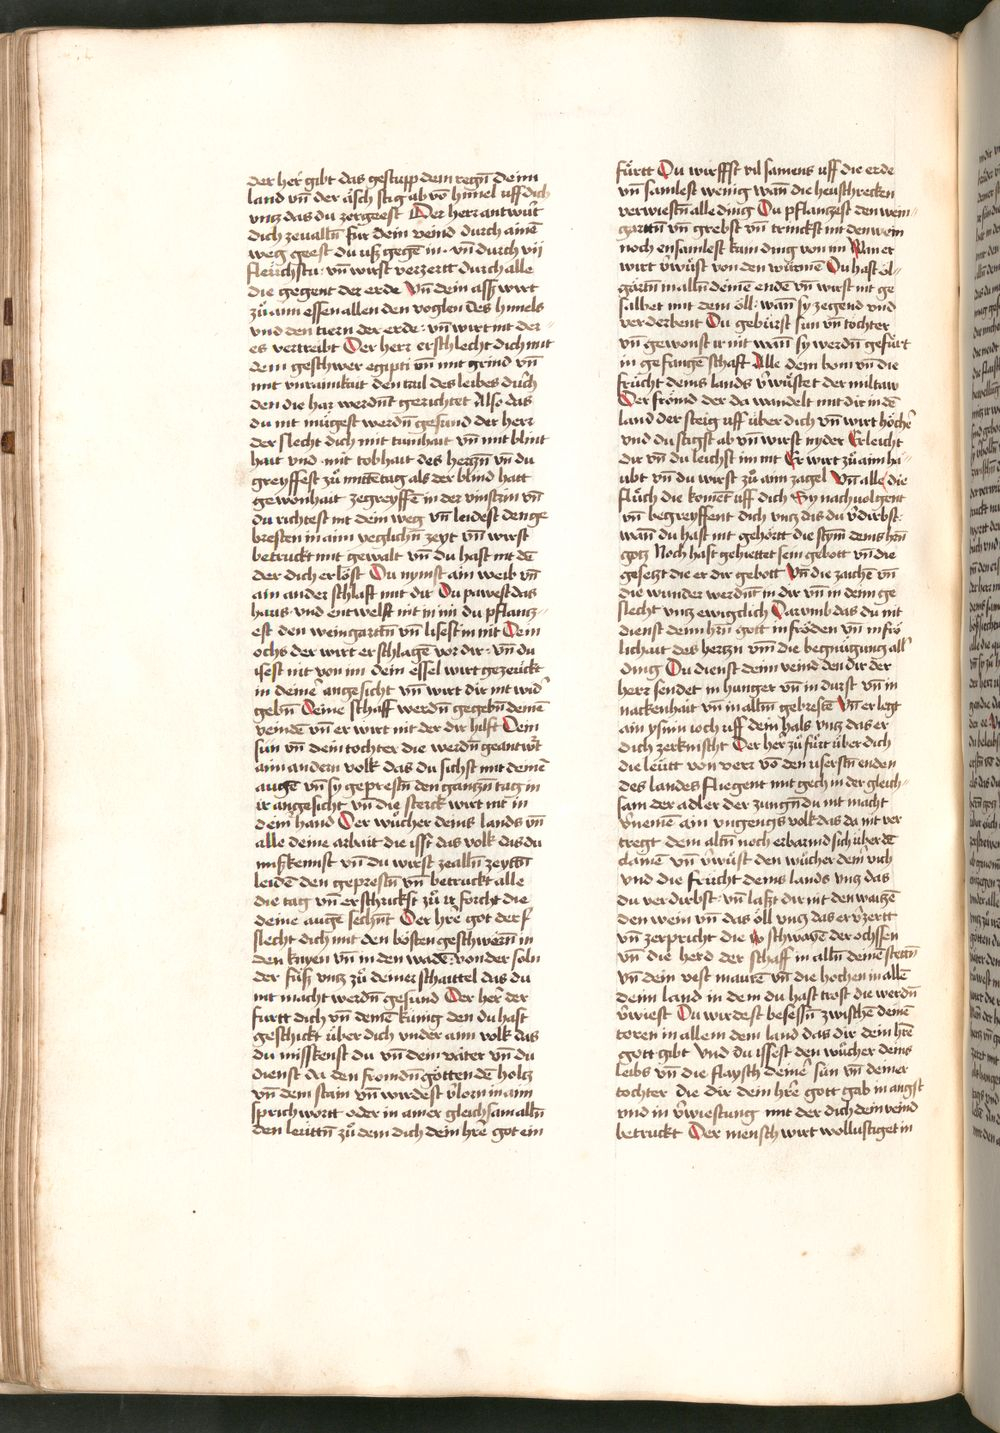 der her̄ gibt das gestupp dein regn̄ deim
land vn̄ der äsch stig ab vō himel uff dich
vntz das du zergeest Der herr antwu̍rt
dich zeualln̄ für dein veind durch ainē
weg geest du uß gegē in · vn̄ durch vij
fleu̍chstu · vn̄ wirst verzertt durch alle
die gegent der erde Vn̄ dein aß wirt
zu̍ aim essen allen den voglen des himels
vnd den tiern der erde · vn̄ wirt nit der
es vertreibt Der herr erschlecht dich mit
dem geschwer egipti vn̄ mit grind vn̄
mit vnrainikait den tail des leibes durch
den die har werdn̄t gerichtet Also das
du nit mügest werdn̄ gesund der herr
der slecht dich mit tumhait vn̄ mit blint
hait vnd mit tobhait des hertzn̄ vn̄ du
greyffest zu̍ mittētag als der blind hatt
gewonhait zegreyffē in der vinstrin vn̄
du richtest nit dein weg vn̄ leidest den ge
bresten in aim yeglichn̄ zeyt vn̄ wirst
betruckt mit gewalt vn̄ du hast nit dē
der dich erlöst Du nymst ain weib vn̄
ain ander schlaft mit dir Du pawest das
haus · vnd entwelst nit in im du pflantz
est den weingartn̄ vn̄ lisest in nit Dein
ochs der wirt erschlagē vor dir · vn̄ du
isest nit von im dein essel wirt gezuckt
in deinē angesicht vn̄ wirt dir nit wid̄
gebn̄ Deine schaff werdn̄ gegebn̄ deinē
veindē vn̄ er wirt nit der dir hilft Dein
sün vn̄ dein tochter die werdn̄ geantwu̍rt
aim andern volk das du sichst mit deinē
augē vn̄ sy geprestn̄ den gantzn̄ tag in
ir angesicht vn̄ die sterck wirt nit in
deinr hand Der wu̍cher deins lands vn̄
alle deine arbait die isst das volk das du
mißkennst vn̄ du wirst zealln̄ zeyttn̄
leidē den geprestn̄ vn̄ betruckt alle
die tag vn̄ erschrickst zu̍ ir forcht die
deine augē sechn̄t Der hr̄e got der
slecht dich mit den bösten geschwern̄ in
den knyen vn̄ in den wadē · von der soln
der fu̍ß vntz zu̍ deiner schaittel das du
nit macht werdn̄ gesund Der her̄ der
fu̍rtt dich vn̄ deinē künig den du hast
geschickt über dich vnder aim volk das
du misskenst du vn̄ dein väter vn̄ du
dienst da den fromdn̄ götten dē holtz
vn̄ dem stain vn̄ wirdest v̄lorn in aim
sprichwortt oder in ainer gleichsam alln̄
den leüttn̄ zu̍ dem dich dein hr̄e got ein
fu̍rtt Du wirffst vil samens uff die erde
vn̄ samlest wenig wan̄ die heuschrecken
verwiestn̄ alle ding Du pflantzest den wein
gartn̄ vn̄ grebst vn̄ trinckst nit den wein
noch ensamlest kain ding von im Wan er
wirt v̄wu̍st von den wu̍rmē Du hast öl
gärtn̄ in alln̄ deinē endē vn̄ wirst nit ge
salbet mit dem öll · wan̄ sy zegend vnd
verderbent Du gebürst sun vn̄ töchter
vn̄ gewonst ir nit wan̄ sy werdn̄ gefürt
in gefangēschaft Alle dein bom vn̄ die
frücht deins lands v̄wu̍stet der miltaw
Der frömd der da wandelt mit dir in dē
land der steig uff über dich vn̄ wirt höchē
vnd du stigst ab vn̄ wirst nyder Er leicht
dir vn̄ du leichst im nit Er wirt zu̍ aim ha
ubt vn̄ du wirst zu̍ aim zagel Vn̄ alle die
flu̍ch die komēt uff dich Sy nachuolgent
vn̄ begreyffent dich vntz das du v̄dirbst ·
wan̄ du hast nit gehörtt die stym deins hrn̄
gotz Noch hast gehiettet sein gebott vn̄ die
gesetzt die er dir gebott Vn̄ die zaichē vn̄
die wunder werdnt̄ in dir vn̄ in deim ge
slecht vntz ewigclich Darumb das du nit
dienst deim hrn̄ gott in fröden vn̄ in frö
lichait des hertzn vm̄ die begnügung all̄
ding Du dienst deim veind den dir der
herr sendet in hunger vn̄ in durst vn̄ in
nackenhait vn̄ in alln̄ gebrestē Vn̄ er legt
ain ysnin ioch uff dein hals vntz das er
dich zerknischt Der her̄ zu̍ fu̍rt über dich
die leu̍tt von verr vō den usserstn̄ enden
des landes fliegent mit gech in der gleich
sam der adler der zungn̄ du nit macht
v̄nemē ain vngengs volk das da nit ver
tregt dem altn̄ noch erbarmd sich über dē
clainē vn̄ v̄wu̍st den wu̍cher deinr vich
vnd die frücht deins lands vntz das
du verdirbst · vn̄ laßt dir nit den waitzē
den wein vn̄ das öll vntz das er v̄zertt
vn̄ zerpricht die schwavē der ochssen
vn̄ die herd der schaff in alln̄ deinē stettn̄
vn̄ dein vest maurē vn̄ die hochen in allē
deim land in dem du hast trost die werdn̄
v̄wiest Du wirdest besessn̄ zwischē deinē
toren in allem dem land das dir dein hr̄e
gott gibt Vnd du issest den wu̍cher deins
leibs vn̄ die flaysch deinē sün vn̄ deiner
tochter die dir dein hr̄e gott gab in angst
vnd in v̄wiestung mit der dich dein veind
betruckt Der mensch wirt wollustiget in